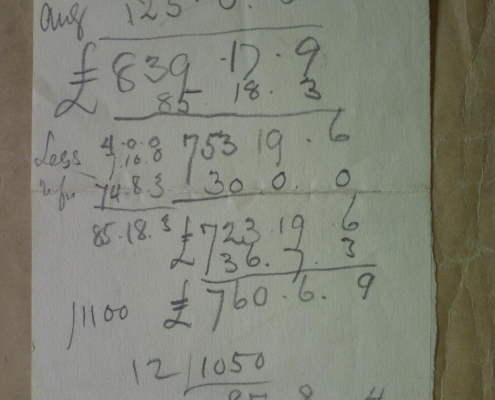 Aug 125 . 0 . 0
£ 839 . 17 . 9
85 . 18 . 3
4 . 0 . 0 753 19 . 6
Less 7 . 10 . 0
74 . 8 . 3 30 0 . 0
85 . 18 . 3 £ 723 . 19 . 6
36 . 7 . 3
/1100 £ 760 . 6 . 9
12 /1050
87 . 8 . 4